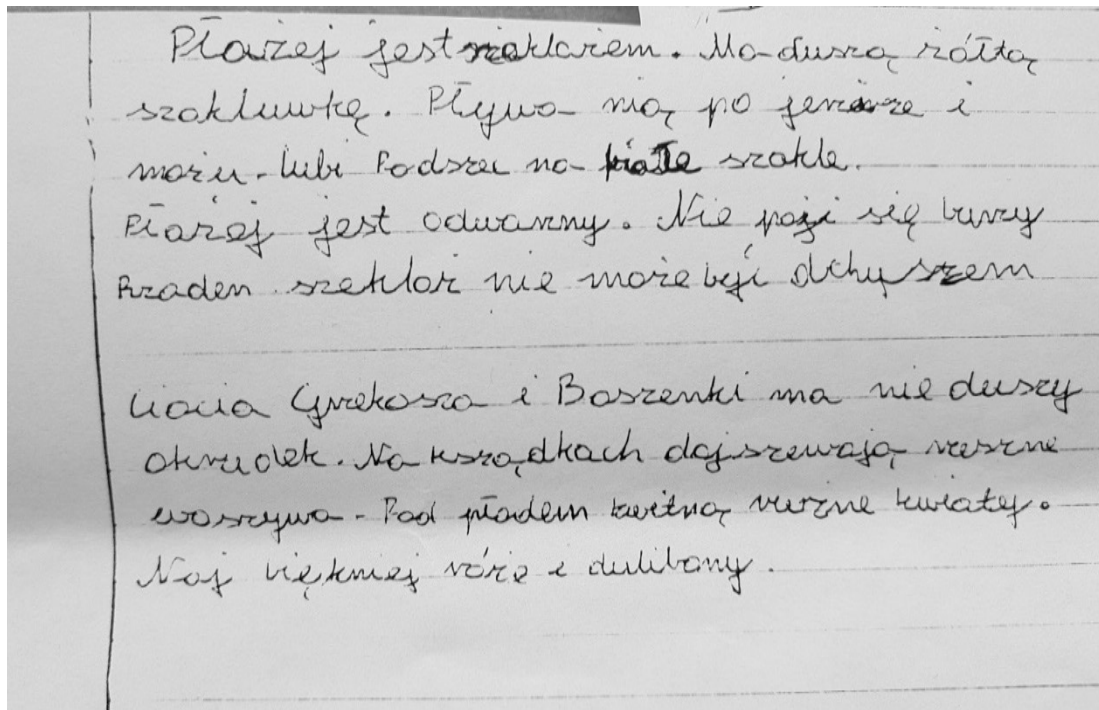 Płażej jest szaklarzem. Ma duszą rzółtą
szakluwkę. Pływa nią po jeziorze i
możu. lubi Podszeć na piałe szakle.
Płażej jest odwarzny. Nie poji się burzy
Rzaden szeklaż nie może być dchuszem
Ciocia Grzekosza i Boszenki ma nie duszy
okrudek. Na ksządkach dojszewają
woszywa. Pod płodem kwitną kwiaty.
Naj piękniej róże i dulibany.